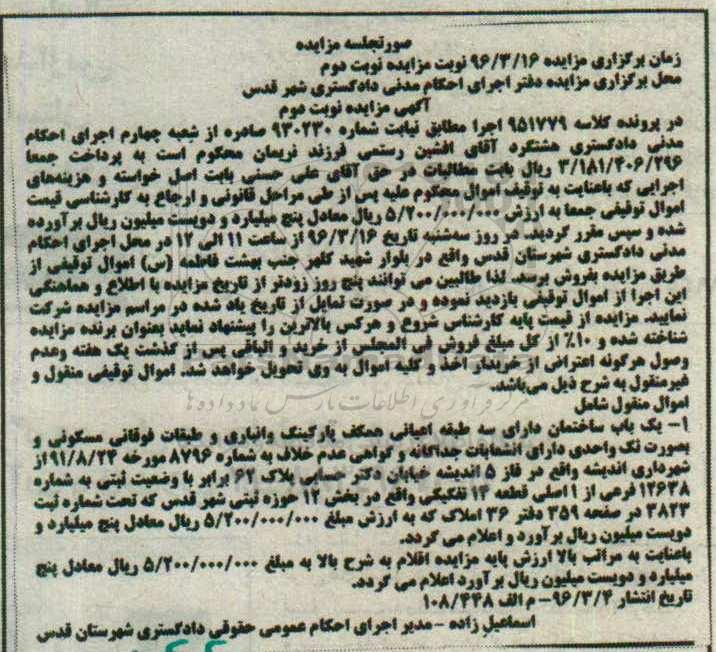 صورتجلسه مزایده
زمان برگزاری مزایده ۹۶/۳/۱۶ نوبت مزایده نوبت دوم
محل برگزاری مزایده دفتر اجرای احکام مدنی دادگستری شهر قدس
آگهی مزایده نوبت دوم
در پرونده کلاسه ۹۵۱۷۷۹ اجرا مطابق نیابت شماره ۹۳۰۲۳۰ صادره از شعبه چهارم اجرای احکام
مدنی دادگستری هشتگرد آقای افشین رستمی فرزند نریمان محکوم است به پرداخت جمعا
۳/۱۸۱/۴۰۶/۲۹۶ ریال بابت مطالبات در حق آقای علی حسنی بابت اصل خواسته و هزینه‌های
اجرایی که باعنایت به توقیف اموال محکوم علیه پس از طی مراحل قانونی و ارجاع به کارشناسی قیمت
اموال توقیفی جمعا به ارزش ۵/۲۰۰/۰۰۰/۰۰۰ ریال معادل پنج میلیارد و دویست میلیون ریال برآورده
شده و سپس مقرر گردید، در روز سه‌شنبه تاریخ ۹۶/۳/۱۶ از ساعت ۱۱ الی ۱۲ در محل اجرای احکام
مدنی دادگستری شهرستان قدس واقع در بلوار شهید کلهر جنب بهشت فاطمه (س) اموال توقیفی از
طریق مزایده بفروش برسد. لذا طالبین می توانند پنج روز زودتر از تاریخ مزایده با اطلاع و هماهنگی
این اجرا از اموال توقیفی بازدید نموده و در صورت تمایل از تاریخ یاد شده در مراسم مزایده شرکت
نمایید. مزایده از قیمت پایه کارشناس شروع و هرکس بالاترین را پیشنهاد نماید بعنوان برنده مزایده
شناخته شده و ۱۰٪ از کل مبلغ فروش فی المجلس از خرید و الباقی پس از گذشت یک هفته وعدم
وصول هرگونه اعتراض از خریدار اخذ و کلیه اموال به وی تحویل خواهد شد. اموال توقیفی منقول و
غیرمنقول به شرح ذیل می‌باشد.
مرکز فرآوری اطلاعات پارس نماد داده ها
اموال منقول شامل
۱- یک باب ساختمان دارای سه طبقه اعیانی همکف پارکینگ وانباری و طبقات فوقانی مسکونی و
بصورت تک واحدی دارای انشعابات جداگانه و گواهی عدم خلاف به شماره ۸۷۹۶ مورخه ۹۱/۸/۲۴ از
شهرداری اندیشه واقع در فاز ۵ اندیشه خیابان دکتر حسابی پلاک ۶۲ برابر با وضعیت ثبتی به شماره
۱۲۶۳۸ فرعی از ۱ اصلی قطعه ۱۳ تفکیکی واقع در بخش ۱۲ حوزه ثبتی شهر قدس که تحت شماره ثبت
۳۸۲۳ در صفحه ۳۵۹ دفتر ۳۶ املاک که به ارزش مبلغ ۵/۲۰۰/۰۰۰/۰۰۰ ریال معادل پنج میلیارد و
دویست میلیون ریال برآورد و اعلام می گردد.
باعنایت به مراتب بالا ارزش پایه مزایده اقلام به شرح بالا به مبلغ ۵/۲۰۰/۰۰۰/۰۰۰ ریال معادل پنج
میلیارد و دویست میلیون ریال برآورد اعلام می گردد.
تاریخ انتشار ۹۶/۳/۴- م الف ۱۰۸/۴۴۸
اسماعیل زاده -مدیر اجرای احکام عمومی حقوقی دادگستری شهرستان قدس